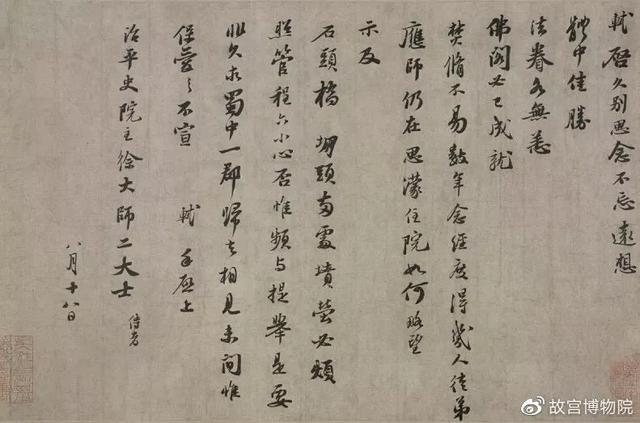 軾啓久別思念不忘遠想
體中佳勝
法眷各無恙
佛閣必已成就
焚脩不易數年念經度得幾人徒弟
應師仍在思濛住院如何略望
示及
石頭橋 堋頭兩處墳塋必煩
照管程六小心否惟頻与提舉是要
非久求蜀中一郡歸去相見未間惟
保愛之不宣 軾 手啓上
治平史院主徐大師二大士 侍者
八月十八日
故宫博物院